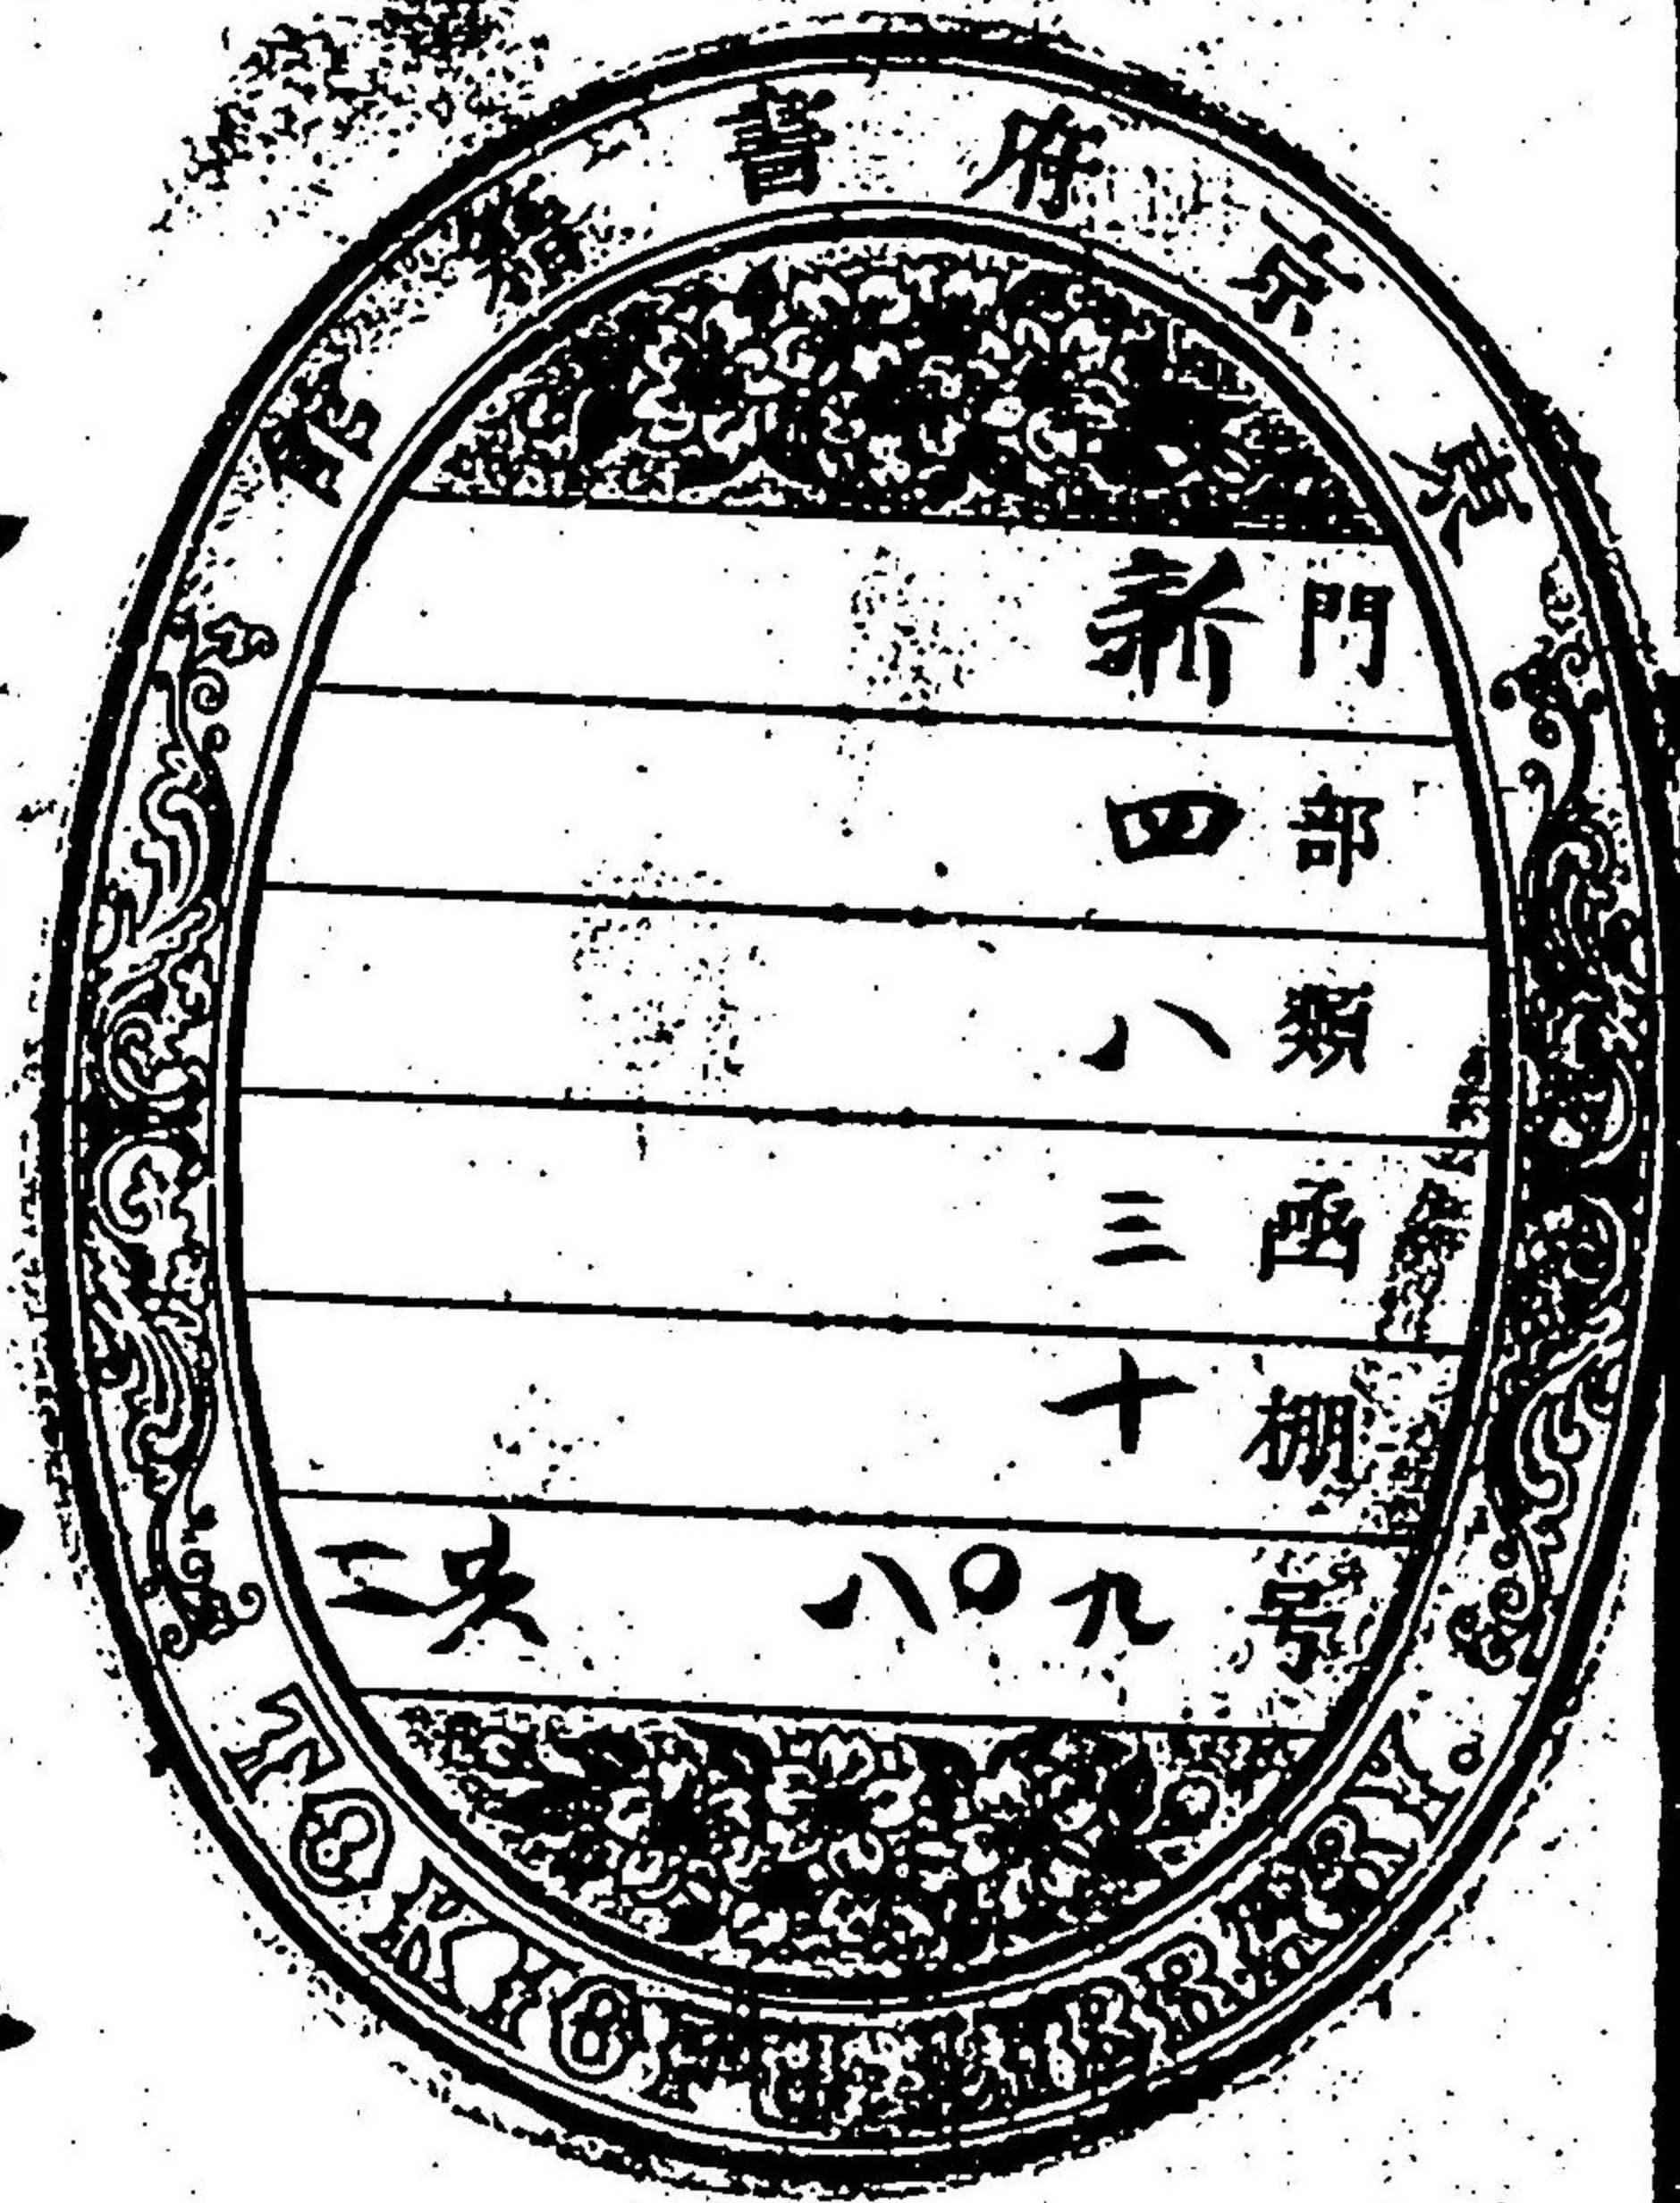 東京府書籍館
門 新
部 四
類 八
函 三
棚 十
号 九〇八 共二
TOKYO FU LIBRARY.